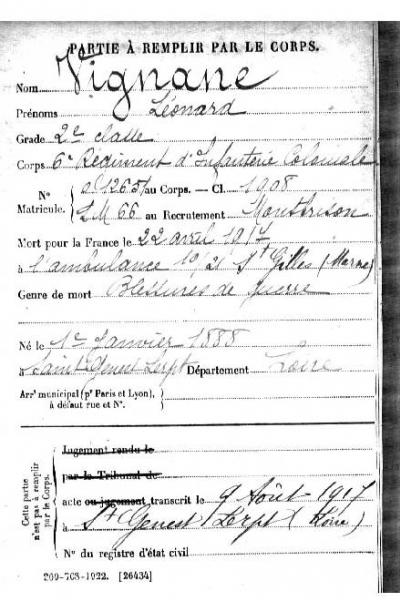 PARTIE À REMPLIR PAR LE CORPS.
Nom Vignane
Prénoms Léonard
Grade 2e classe
Corps 6e Régiment d'Infanterie Coloniale
N° Matricule. { 01265 au Corps. — Cl. 1908
LM 66 au Recrutement Montbrison
Mort pour la France le 22 avril 1917
à l'ambulance 10/21 St Gilles (Marne)
Genre de mort Blessures de guerre
Né le 1er Janvier 1888
à Saint Genest Lerpt Département Loire
Arrt municipal (pr Paris et Lyon),
à défaut rue et N°.
Cette partie n'est pas à remplir par le Corps.
Jugement rendu le
par le Tribunal de
acte ou jugement transcrit le 9 Août 1917
à St Genest Lerpt (Loire)
N° du registre d'état civil
209-708-1922. [26434]